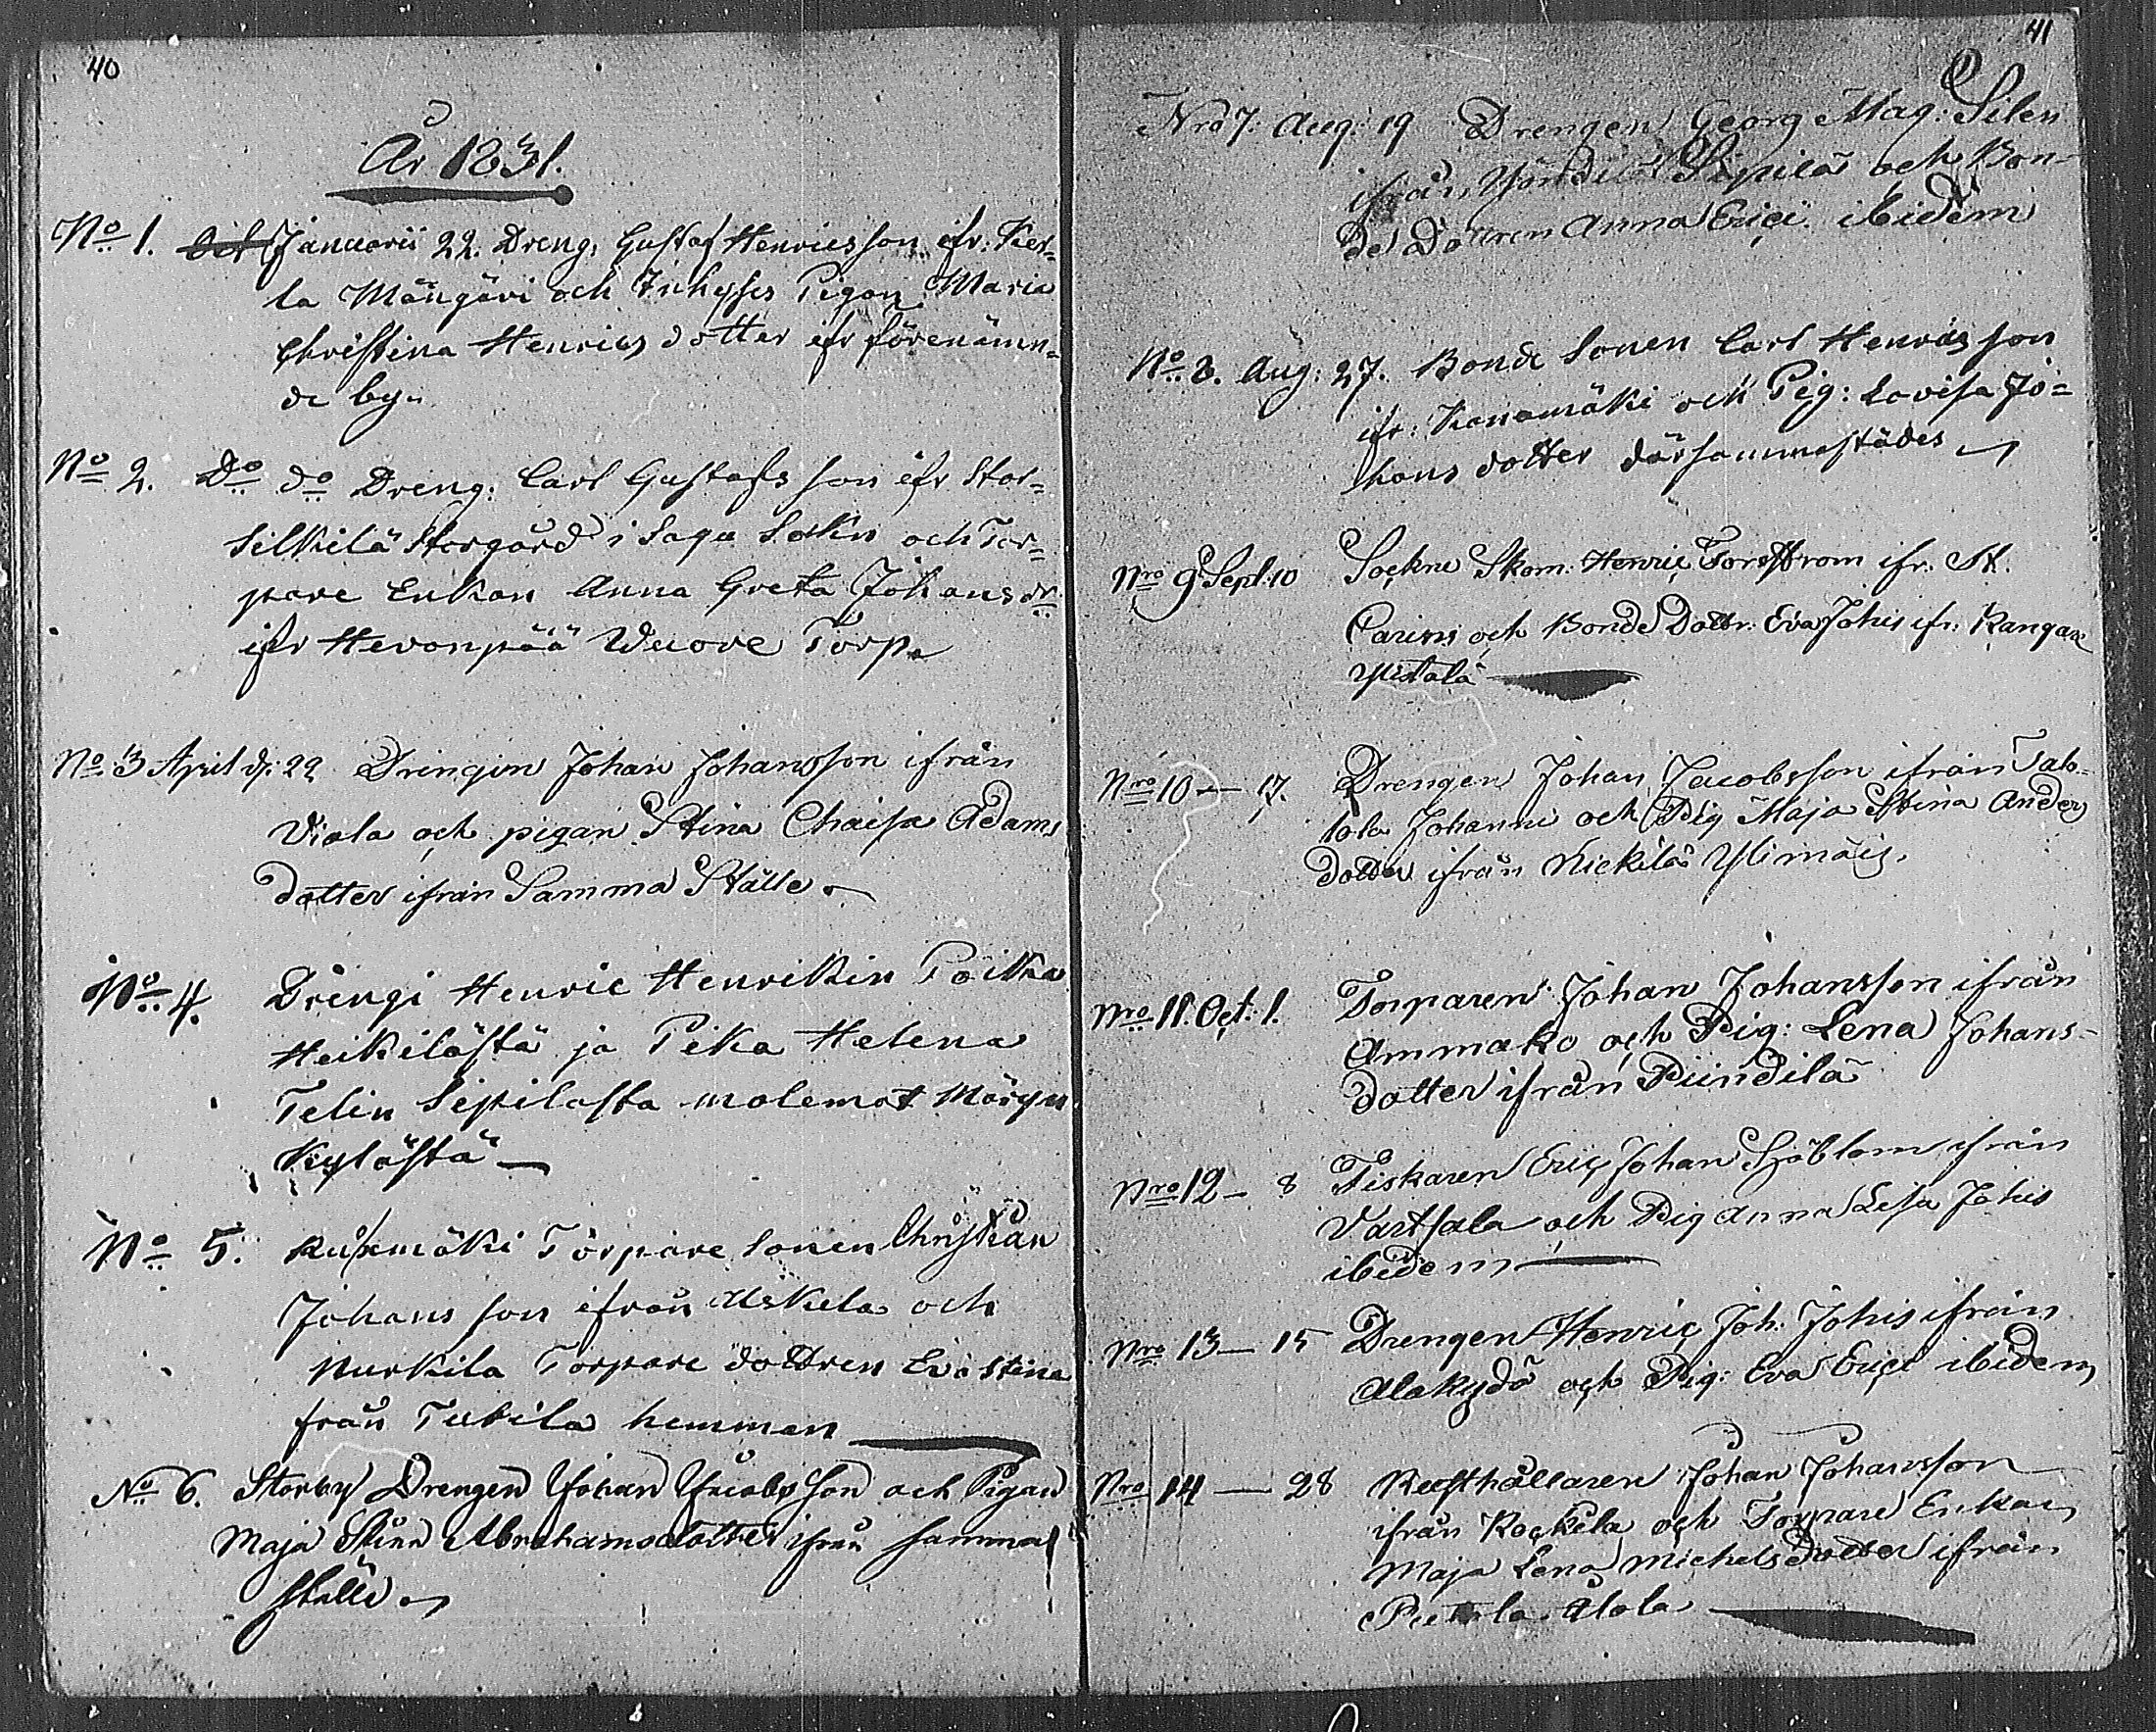 40
År 1831.
No 1. Januarii 22. Dreng: Gustaf Henricsson ifr: Ker-
la Mängäri och Pigan Maria
Christina Henrics dotter ifr förenämn-
de by.
No 2. Do do Dreng: Carl Gustafs son ifr Stor-
silkilä Storgård i Sagu Sokn och Tor-
pare Enkan Anna Greta Johans dr
ifr Hevonpää Wuore Torp
No 3 April d: 22 Drengen Johan Johansson ifrån
Viala och pigan Stina Chaisa Adams
dotter ifrån Samma Ställe
No 4. Drengi Henric Henrikin Poika
Heikilästä ja Pika Helena
Telin Sepilasta molemat Märyn
Kylästä
No 5. Torpare sonen Christian
Johans son ifrån Uskela och
Nurkila Torpare dottren Eva Stina
från Tukila hemman
No 6. Storby Drengen Johan Jacobs son och Pigan
Maja Stina Abrahamsdotter ifrån samma
ställe
41
Nro 7. Aug: 19 Drengen Georg Mag: Silen
ifrån Sipilä och Bon-
de Dottren Anna Erici ibidem
No 8. Aug: 27. Bonde Sonen Carl Henrics son
ifr: Kanamäki och Pig: Lovisa Jo-
hans dotter därsammastädes
Nro 9 Sept: 10 Sockne Skom: Henric Forsstrom ifr. St.
Carins och Bonde Dottr: Eva Johis ifr: Kangare
Yistalä
Nro 10 — 17. Drengen Johan Jacobsson ifrån Talo-
lola Johanni och Pig Maja Stina Anders
dotter ifrån Nickilä Ylimäis.
Nro 11. Oct: 1. Torparen Johan Johansson ifrån
Ammako och Pig: Lena Johans-
dotter ifrån Piindilä
Nro 12 — 8 Fiskaren Eric Johan Sjöblom ifrån
Vartsala och Pig Anna Lisa Johis
ibidem
Nro 13 — 15 Drengen Henric Joh: Johis ifrån
Alakydö och Pig: Eva Erici ibidem
Nro 14 — 28 Rusthållaren Johan Johansson
ifrån Kockila och Torpare Enkan
Maja Lena Michels dotter ifrån
Alola